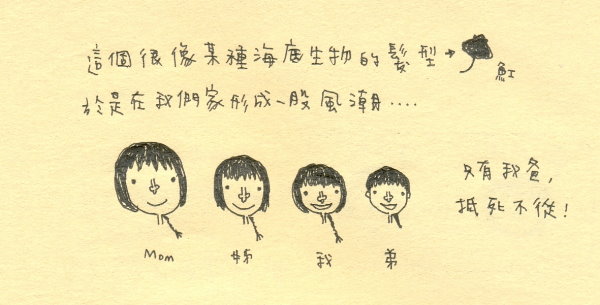 這個很像某種海底生物的髮型→
魟
於是在我們家形成一股風潮....
只有我爸,
抵死不從!
Mom 姊 我 弟